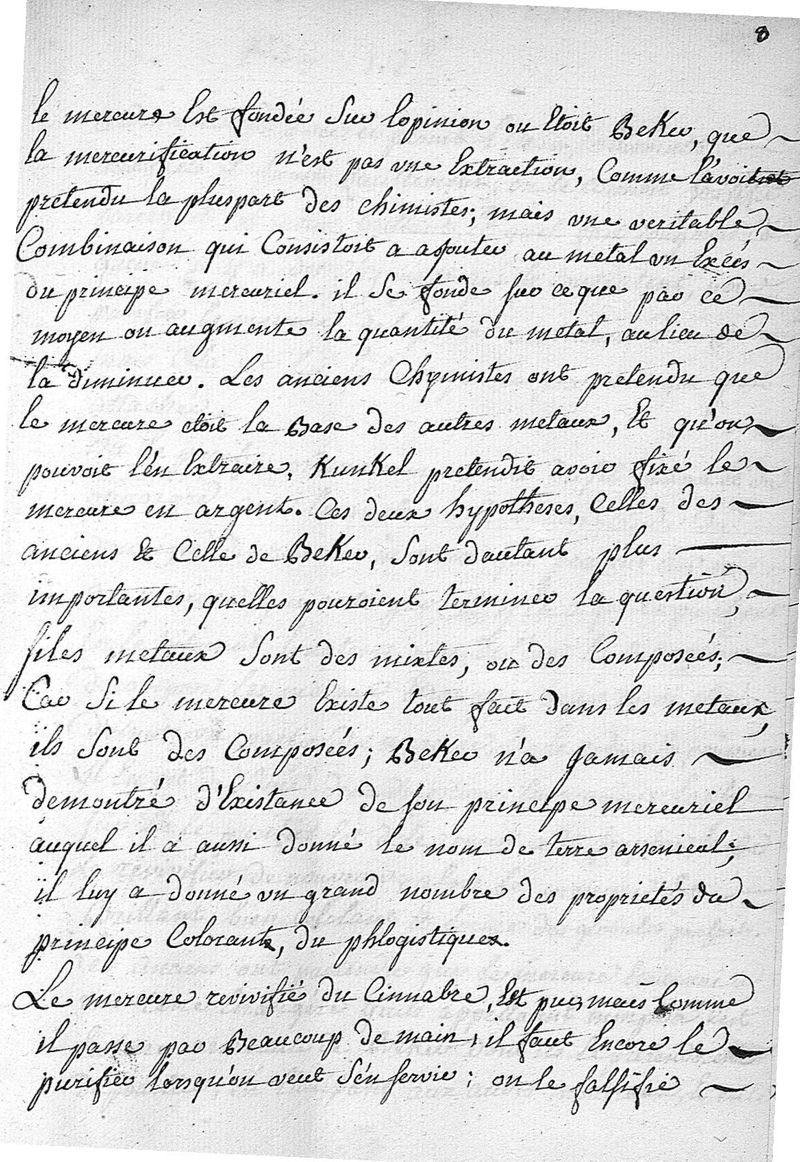 8
le mercure Est fondée Sur lopinion ou Etoit BeKer, que
la mercurification n'est pas vne Extraction, Comme l'avoit
pretendu la pluspart des chimistes; mais vne veritable
Combinaison qui Consistoit a ajouter au metal vn Excés
du principe mercuriel. il Se fonde sur ce que par ce
moyen on augmente la quantité du metal, au lieu de
la diminuer. Les anciens Chymistes ont pretendu que
le mercure etoit la Base des autres metaux, Et qu'on
pouvoit l'en Extraire, Kunkel pretendit avoir fixé le
mercure en argent. Ces deux hypotheses, Celles des
anciens Et Celle de BeKer, Sont dautant plus
importantes, quelles pouroient terminer la question,
si les metaux Sont des mixtes, ou des Composeés;
Car Si le mercure Existe tout fait dans les metaux,
ils Sont des Composeés; BeKer n'a Jamais
demontré d'Existance de son principe mercuriel
auquel il a aussi donné le nom de terre arsenical;
il luy a donné vn grand nombre des proprietés du
principe Colorant, du phlogistique.
Le mercure revivifié du Cinnabre, Est pur, mais Comme
il passe par Beaucoup de main, il faut Encore le
purifier lorsqu'on veut S'en servir; on le falsifie